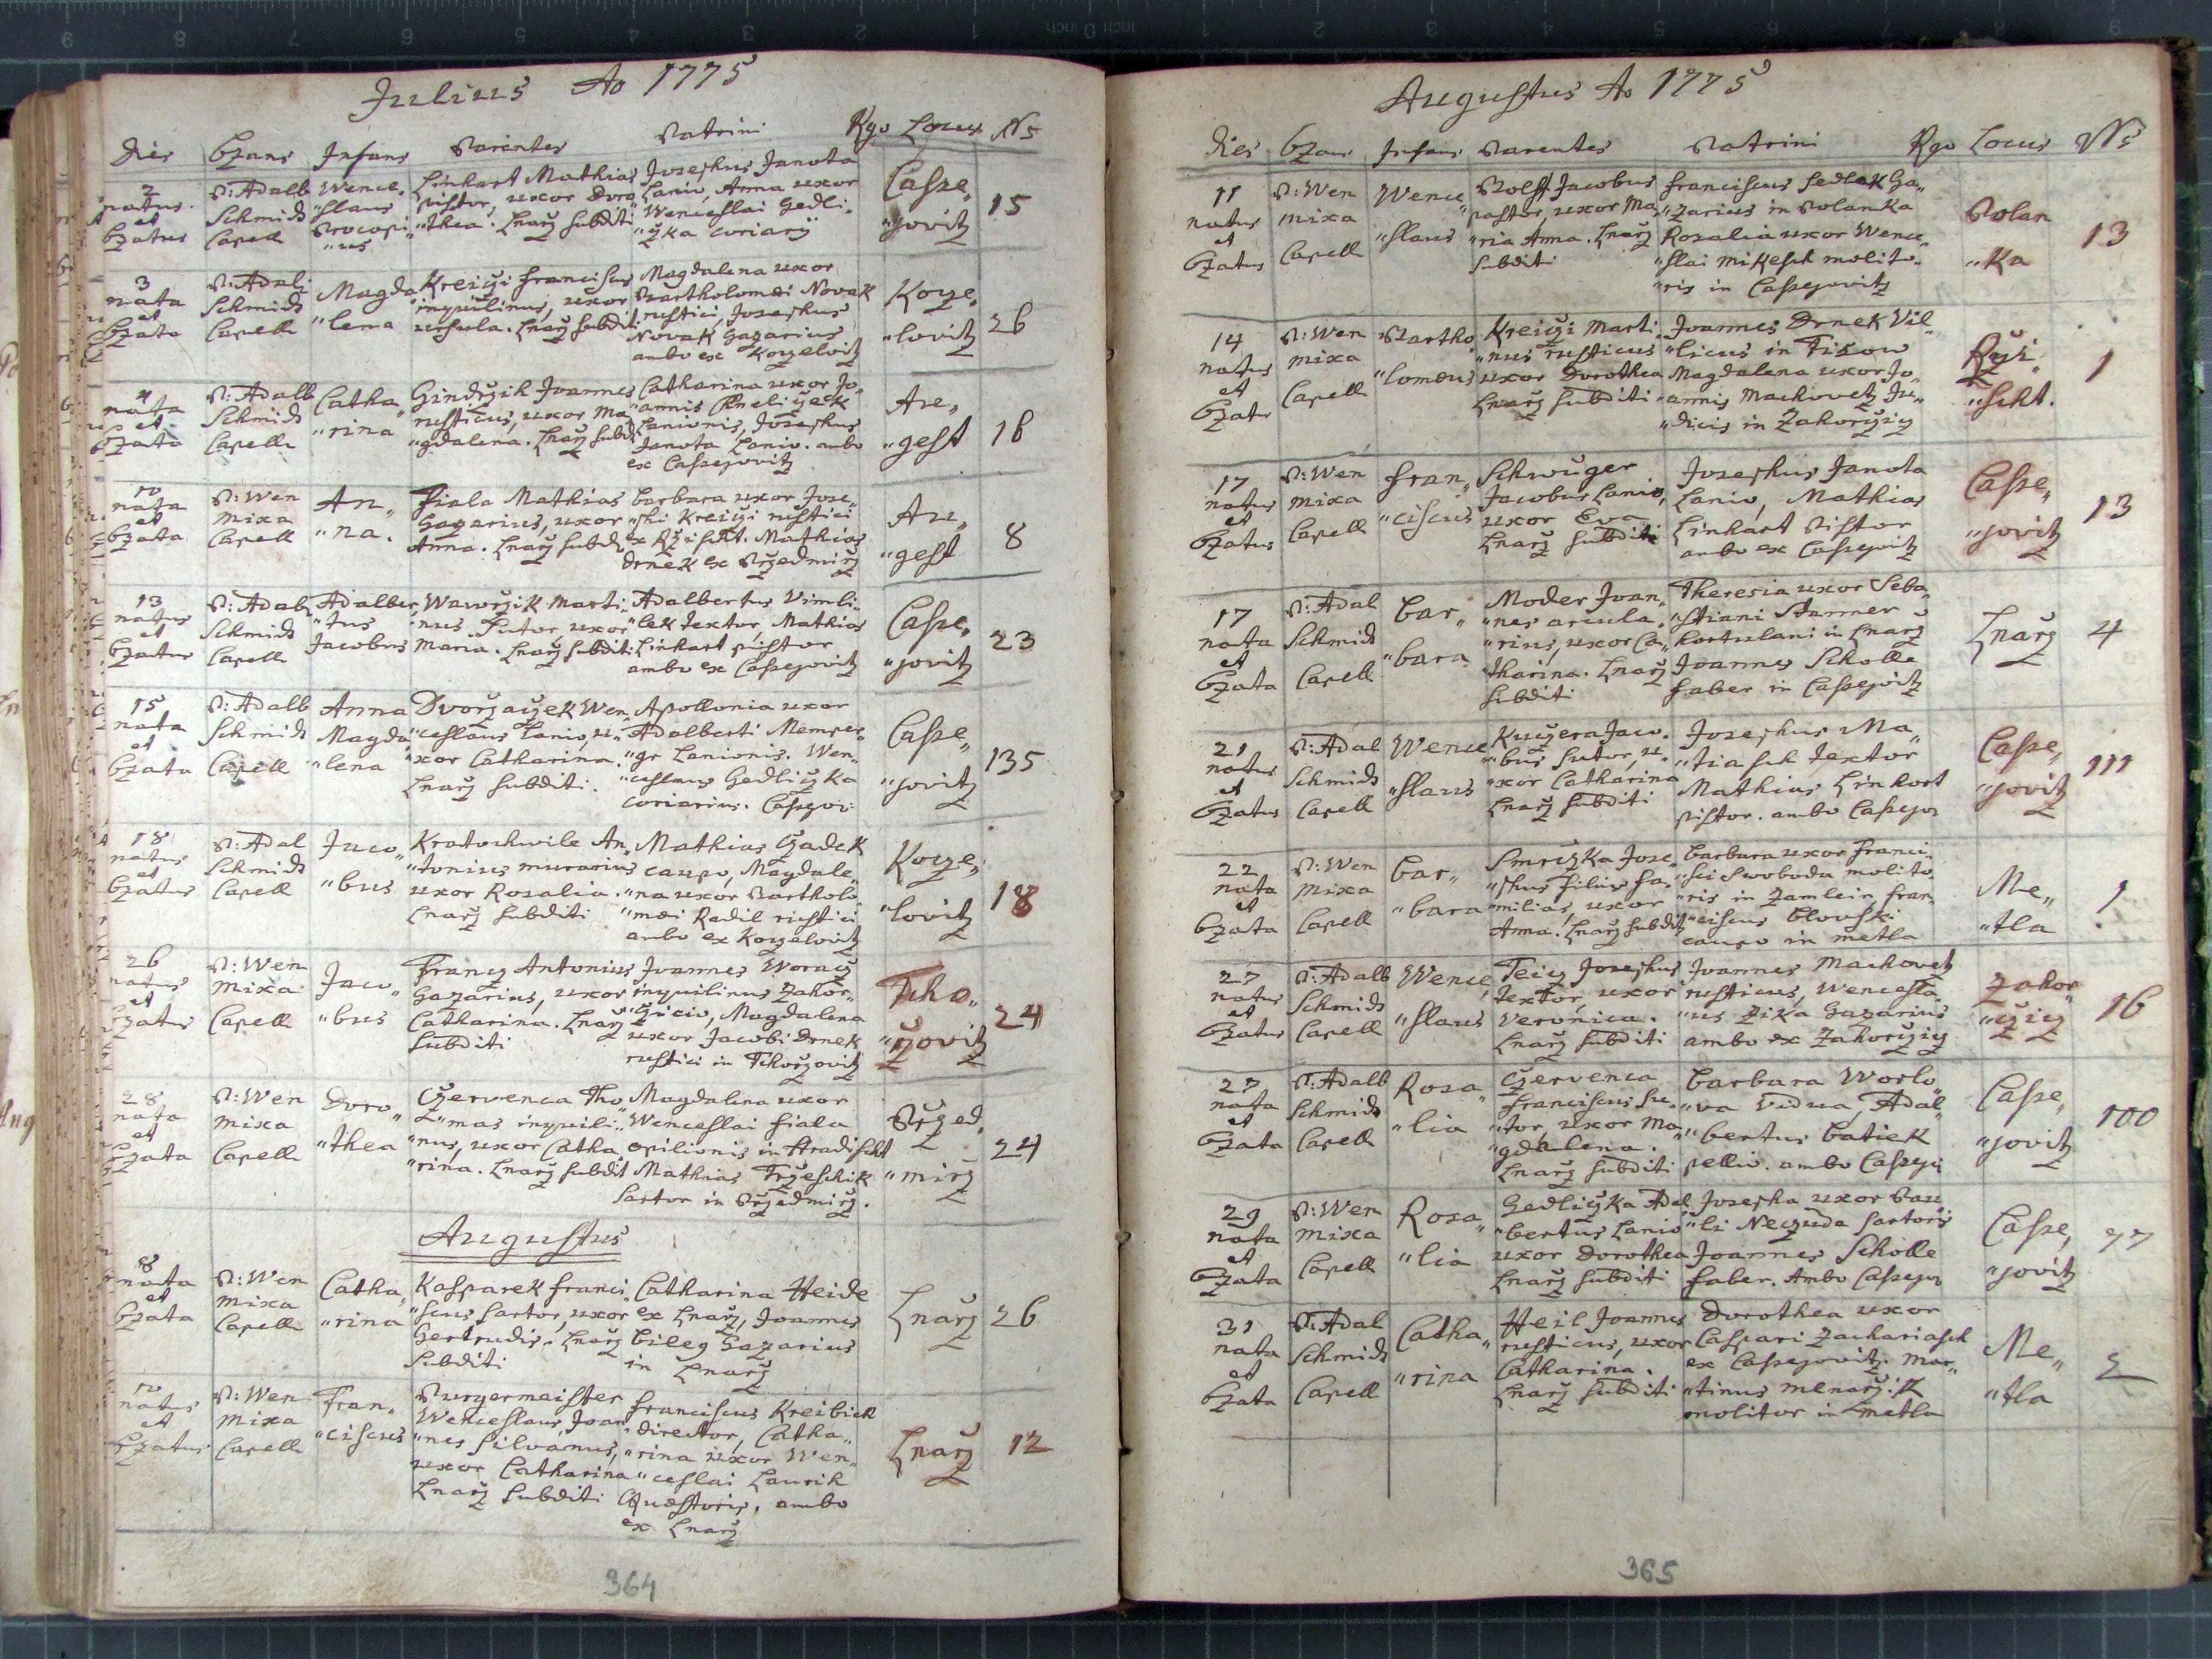 Julius Ao 1775
Dies Bzans Infans Parentes Patrini Rgo Locus Ns
2 natus et bzatus
P: Adalb Schmids Capell
Wence„ „slaus Procopi„ „us
Linhart Mathias
pistor, uxor Doro„
„thea. Lnarz subditi
Josephus Janota
Lanio, Anna uxor
Wenceslai Gedli„
„czka coriarÿ
Casse„ „jovitz
15
3 nata et bzata
P: Adalb Schmids Capell
Magda „lena
Kreiczi Franciscus
inquilinus, uxor
Ursula. Lnarz subditi
Magdalena uxor
Bartholomæi Novak
rustici, Josephus
Novak Gazarius
ambo ex Kozelovitz
Koze„ „lovitz
26
4 nata et bzata
P: Adalb Schmids Capell
Catha„ „rina
Gindrzik Joannes
rusticus, uxor Ma„
„gdalena. Lnarz subd
Catharina uxor Jo„
„annis
Lanionis, Josephus
Janota Lanio. ambo
ex Cassejovitz
Au„ „gest
18
10 nata et bzata
P: Wen Mixa Capell
An„ „na.
Fiala Mathias
Gazarius, uxor
Anna. Lnarz subd
Barbara uxor Jose„
„phi Kreiczi rustici
ex Rzischt. Mathias
Drnek ex Przedmirz
Au„ „gest
8
13 natus et bzatus
P: Adalb Schmids Capell
Adalber„ „tus Jacobus
Wawrzik Marti„
„nus Sutor, uxor
Maria. Lnarz subditi
Adalbertus Vimli„
„lek Textor, Mathias
Linhart pistor
ambo ex Cassejovitz
Casse„ „jovitz
23
15 nata et bzata
P: Adalb Schmids Capell
Anna Magda „lena
Dvorzaczek Wen„
„ceslaus Lanio, u„
„xor Catharina.
Lnarz subditi.
Apollonia uxor
Adalberti Memper„
„gr Lanionis. Wen„
„ceslaus Gedliczka
coriarius. Cassejov:
Casse„ „jovitz
135
18 natus et bzatus
P: Adal Schmids Capell
Jaco„ „bus
Kratochwile An„
„tonius murarius
uxor Rosalia.
Lnarz subditi
Mathias Czadek
caupo, Magdale„
„na uxor Bartholo„
„mæi Radil rustici
ambo ex Kozelovitz
Koze„ „lovitz
18
26 natus et bzatus
P: Wen Mixa Capell
Jaco„ „bus
Francz Antonius
Gazarius, uxor
Catharina. Lnarz
subditi
Joannes Woracz
inquilinus Zahor„
„zicio, Magdalena
uxor Jacobi Drnek
rustici in Tchorzovitz
Tcho„ „rzovitz
24
28 nata et bzata
P: Wen Mixa Capell
Doro„ „thea
Czervenca Tho„
„mas inquili„
„nus, uxor Catha„
„rina. Lnarz subdit
Magdalena uxor
Wenceslai Fiala
opilionis in Hradischt
Mathias Trzeschik
Sartor in Przedmirz.
Przed„ „mirz
24
Augustus
8 nata et bzata
P: Wen Mixa Capell
Catha„ „rina
Kasparek Franci„
„scus Sartor, uxor
Gertrudis. Lnarz
subditi
Catharina Heide
ex Lnarz, Joannes
Bileg Gazarius
in Lnarz
Lnarz
26
10 natus et bzatus
P: Wen Mixa Capell
Fran„ „ciscus
Purgermeister
Wenceslaus, Joan„
„nes Silvanus,
uxor Catharina
Lnarz subditi
Franciscus Kreibich
director, Catha„
„rina uxor Wen„
„ceslai Laurih
Quæstoris, ambo
ex Lnarz
Lnarz
12
364
Augustus Ao 1775
Dies Bzans Infans Parentes Patrini Rgo Locus Ns
11 natus et bzatus
P: Wen Mixa Capell
Wence„ „slaus
Wolff Jacobus
pastor, uxor Ma„
„ria Anna. Lnarz
subditi
Franciscus Sedlak Ga„
„zarius in Polanka
Rosalia uxor Wence„
„slai Mikesch molito„
„ris in Cassejovitz
Polan „ka
13
14 natus et bzatus
P: Wen Mixa Capell
Bartho „lomæus
Kreiczi Marti„
„nus rusticus
uxor Dorothea
Lnarz subditi
Joannes Drnek Vil„
„licus in Tisow
Magdalena uxor Jo„
„annis Machovetz Ju„
„dicis in Zahorzicz
Rzi„ „scht.
1
17 natus et bzatus
P: Wen Mixa Capell
Fran„ „ciscus
Schwuger
Jacobus Lanio,
uxor Eva
Lnarz subditi
Josephus Janota
Lanio, Mathias
Linhart Pistor
ambo ex Cassejovitz
Casse„ „jovitz
13
17 nata et bzata
P: Adal Schmids Capell
Bar„ „bara
Moder Joan„
„nes arcula„
„rius, uxor Ca„
„tharina. Lnarz
subditi
Theresia uxor Seba„
„stiani Stanner
hortulani in Lnarz
Joannes Scholle
faber in Cassejovitz
Lnarz
4
21 natus et bzatus
P: Adal Schmids Capell
Wence „slaus
Kuczera Jaco„
„bus Sutor, u„
„xor Catharina
Lnarz subditi
Josephus Ma„
„tiasch Textor
Mathias Linhart
pistor. ambo Cassejov
Casse„ „jovitz
111
22 nata et bzata
P: Wen Mixa Capell
Bar„ „bara
Smrczka Jose„
„phus filius fa„
„milias, uxor
Anna. Lnarz subdit
Barbara uxor Franci„
„sci Swoboda molito„
„ris in Zamlein Fran„
„ciscus Blovski
caupo in Metla
Me„ „tla
1
27 natus et bzatus
P: Adalb Schmids Capell
Wence„ „slaus
Teicz Josephus
Textor, uxor
Veronica.
Lnarz subditi
Joannes Machovetz
rusticus, Wencesla„
„us Zika Gazarius
ambo ex Zahorzicz
Zahor „zicz
16
27 nata et bzata
P: Adalb Schmids Capell
Rosa „lia
Czervenca
Franciscus Su„
„tor, uxor Ma„
„gdalena.
Lnarz subditi
Barbara Worlo„
„va Vidua, Adal„
„bertus Batiek
pellio. ambo Cassejo
Casse„ „jovitz
100
29 nata et bzata
P: Wen Mixa Capell
Rosa „lia
Gedliczka Adal
„bertus Lanio
uxor Dorothea
Lnarz subditi
Josepha uxor Pau„
„li Neczuda Sartoris
Joannes Scholle
faber. Ambo Cassejov
Casse„ „jovitz
77
31 nata et bzata
P: Adal Schmids Capell
Catha„ „rina
Heil Joannes
rusticus, uxor
Catharina.
Lnarz subditi
Dorothea uxor
Caspari Zachariasch
ex Cassejovitz. Mar„
„tinus
molitor in Metla
Me„ „tla
2
365